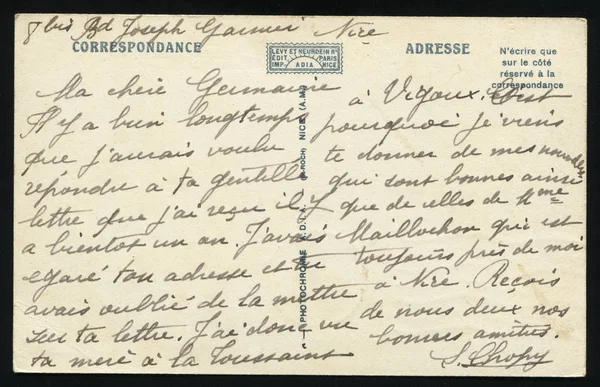 8 bis Bd Joseph Garnier Nice
CORRESPONDANCE
LEVY ET NEURDEIN Rs
EDIT. PARIS
IMP. ADIA NICE
ADRESSE
N'écrire que
sur le côté
réservé à la
correspondance
Ma chère Germaine
Il y a bien longtemps
que j'aurais voulu
répondre à ta gentille
lettre que j'ai reçu il y
a bientôt un an. J'avais
egaré ton adresse et tu
avais oublié de la mettre
sur ta lettre. J'ai donc vu
ta mère à la Toussaint
PHOTOCHROMIE A.D.I.A. NICE (A.M.)
à Vigoux. C'est
pourquoi je viens
te donner de mes nouvelles
qui sont bonnes ainsi
que de celles de Mme
Maillochon qui est
toujours près de moi
à Nice. Reçois
de nous deux nos
bonnes amitiés.
S. Chopy